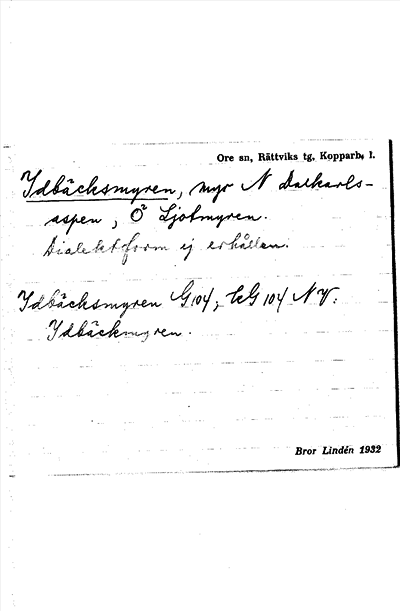 Ore sn, Rättviks tg, Kopparb. l.
Idbäcksmyren, myr N Dalkarls-
aspen, Ö Ljotmyren.
Dialektform ej erhållen.
Idbäcksmyren G 104; G 104 NV.
Idbäckmyren.
Bror Lindén 1932